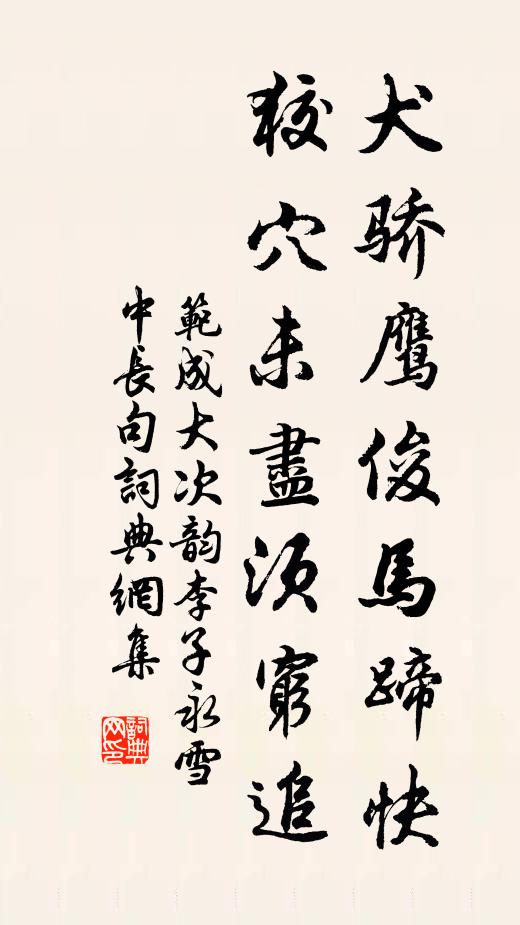 犬骄鹰俊馬蹄快
狡穴未盡须窮追
範成大次韵李子永雪
中長句詞典網集
詞典
网印